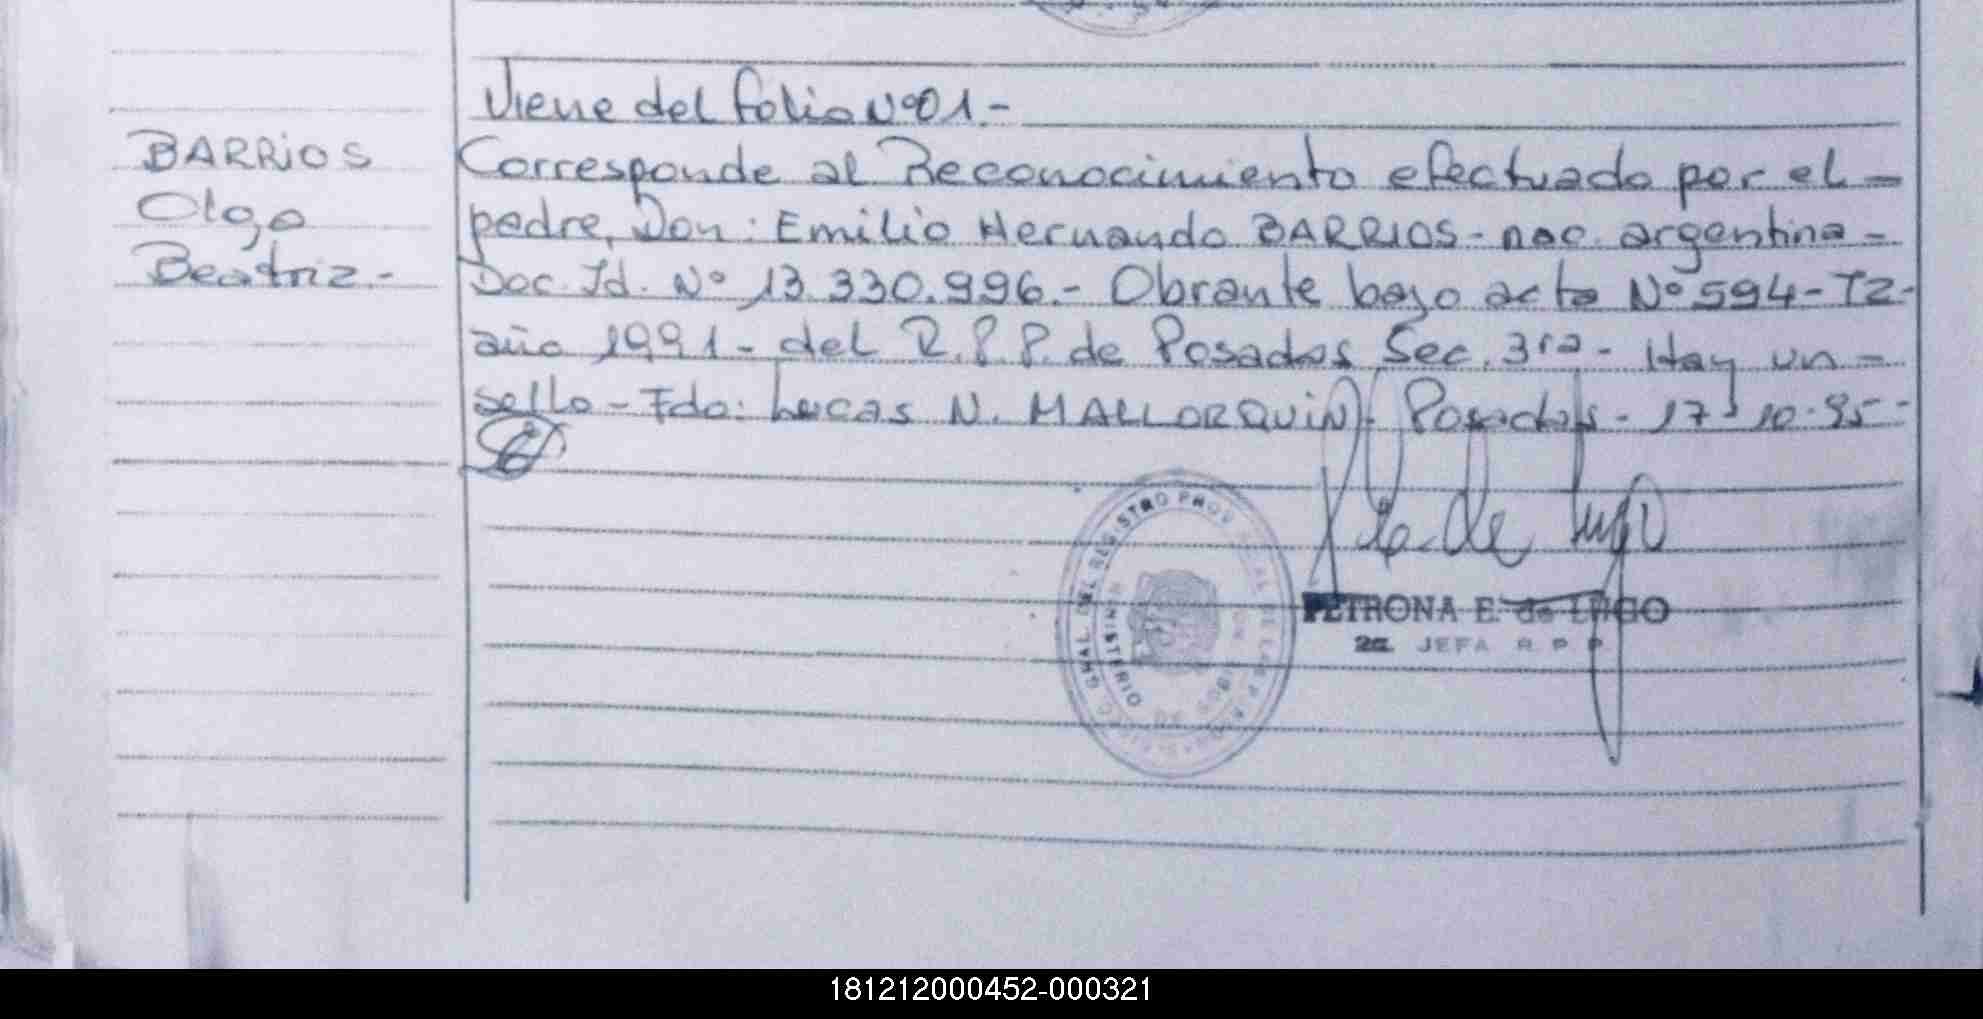 Viene del folio Nº 01.-
BARRIOS
Olga
Beatriz.-
Corresponde al Reconocimiento efectuado por el -
padre, Don: Emilio Hernando BARRIOS - nac. argentina -
Doc. Id. Nº 13.330.996.- Obrante bajo acta Nº 594 - T2 -
año 1991 - del R.P.P. de Posadas Sec. 3ra - Hay un -
sello - Fdo: Lucas N. MALLORQUIN). Posadas - 17-10-95 -
de Lugo
PETRONA E. de LUGO
2a. JEFA R P P
GRAL. DEL REGISTRO PROV
181212000452-000321